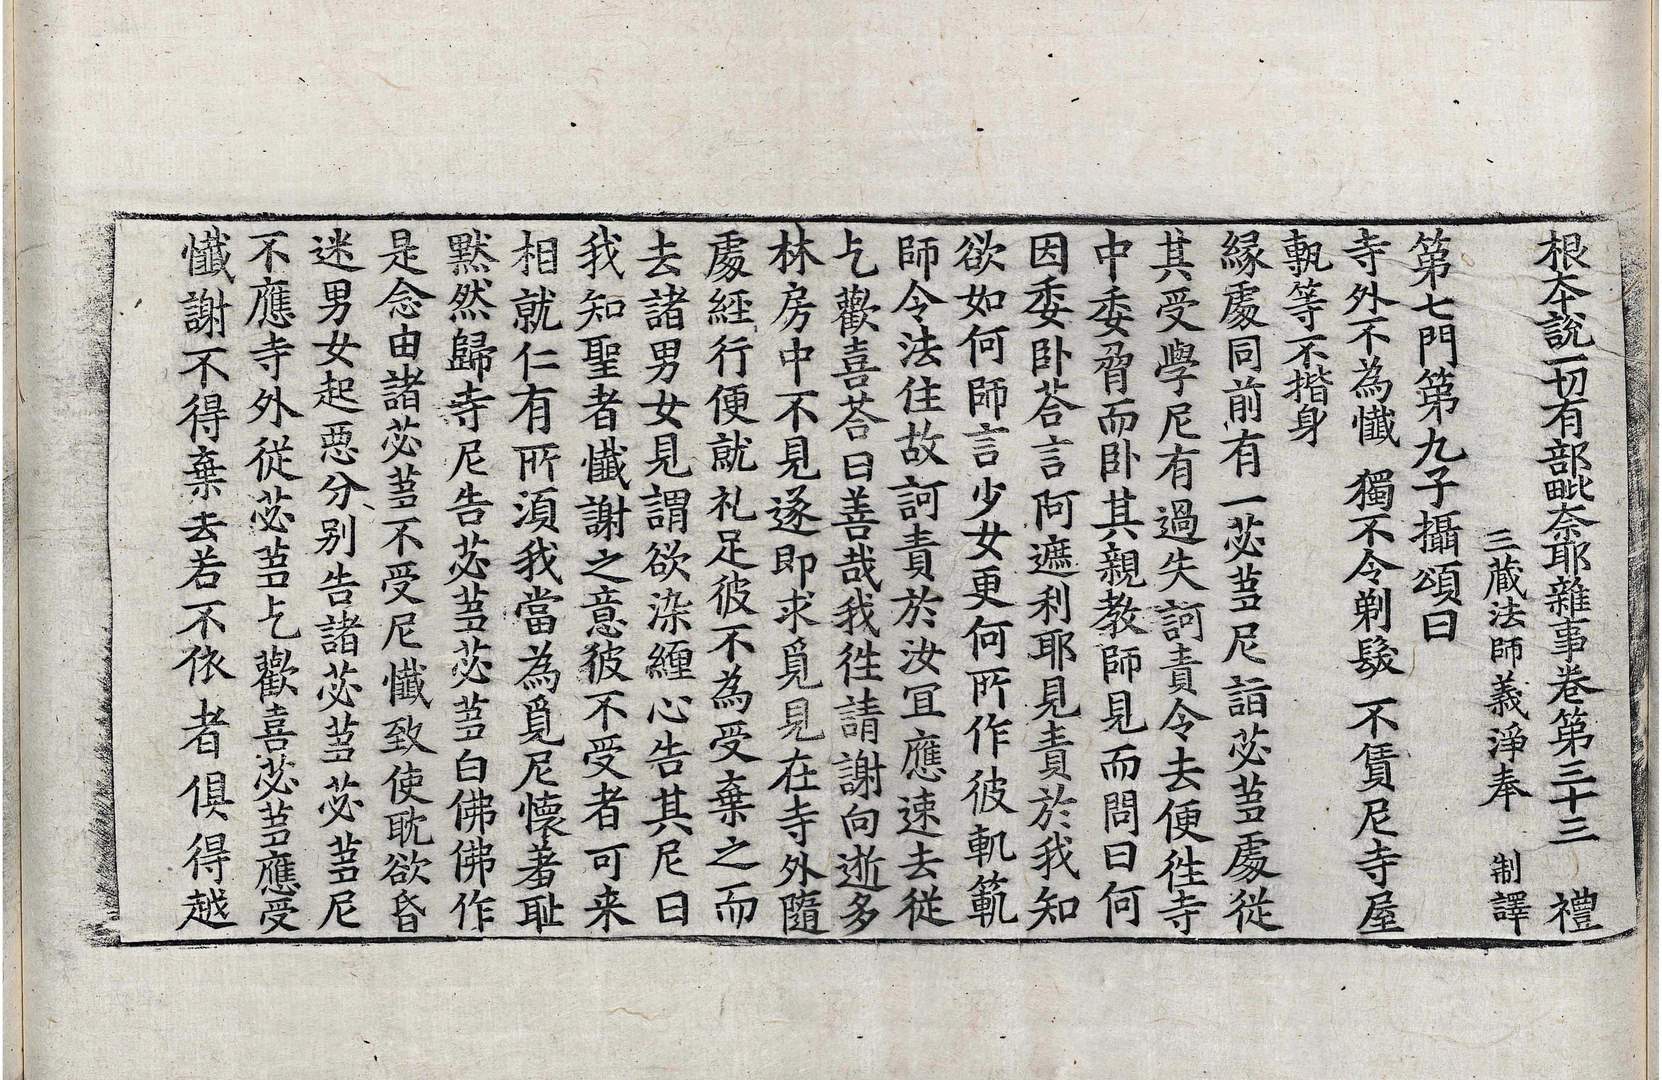 根夲說一切有部毗奈耶雜事卷第三十三　禮
三藏法師義淨奉　制譯
第七門第九子攝頌曰
寺外不為懺　獨不令剃髮　不賃尼寺屋
輒等不揩身
縁處同前有一苾蒭尼詣苾蒭處從
其受學尼有過失訶責令去便徃寺
中委脅而卧其親教師見而問曰何
因委卧荅言阿遮利耶見責於我知
欲如何師言少女更何所作彼軌範
師令法住故訶責於汝宜應速去從
乞歡喜荅曰善哉我徃請謝向逝多
林房中不見遂即求覓見在寺外隨
處經行便就礼足彼不為受棄之而
去諸男女見謂欲染纏心告其尼曰
我知聖者懺謝之意彼不受者可来
相就仁有所湏我當為覓尼懷著耻
黙然歸寺尼告苾蒭苾蒭白佛佛作
是念由諸苾蒭不受尼懺致使耽欲昏
迷男女起惡分别告諸苾蒭苾蒭尼
不應寺外從苾蒭乞歡喜苾蒭應受
懺謝不得棄去若不依者俱得越